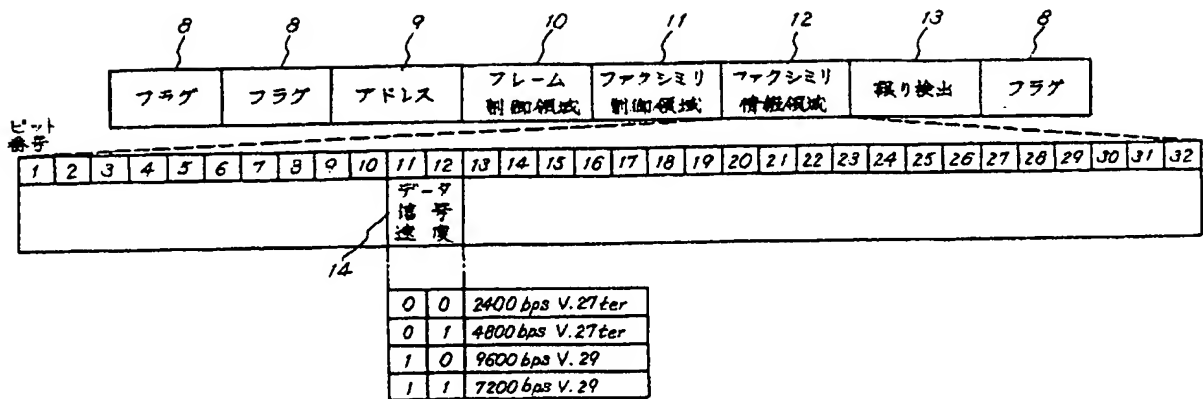 8 8 9 10 11 12 13 8
フラグ フラグ アドレス フレーム ファクシミリ ファクシミリ 誤り検出 フラグ
制御領域 制御領域 情報領域
ビット
番号
1 2 3 4 5 6 7 8 9 10 11 12 13 14 15 16 17 18 19 20 21 22 23 24 25 26 27 28 29 30 31 32
データ
信号
速度
14
0 0 2400 bps V.27ter
0 1 4800 bps V.27ter
1 0 9600 bps V.29
1 1 7200 bps V.29